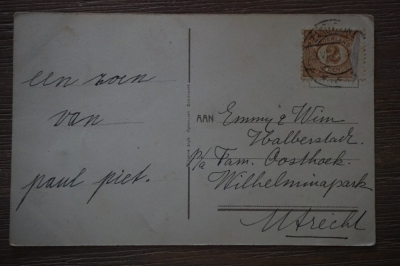 een zoen
van
paul piet.
AAN Emmy & Wim
Halberstadt.
p/a Fam. Oosthoek.
Wilhelminapark
Utrecht
2